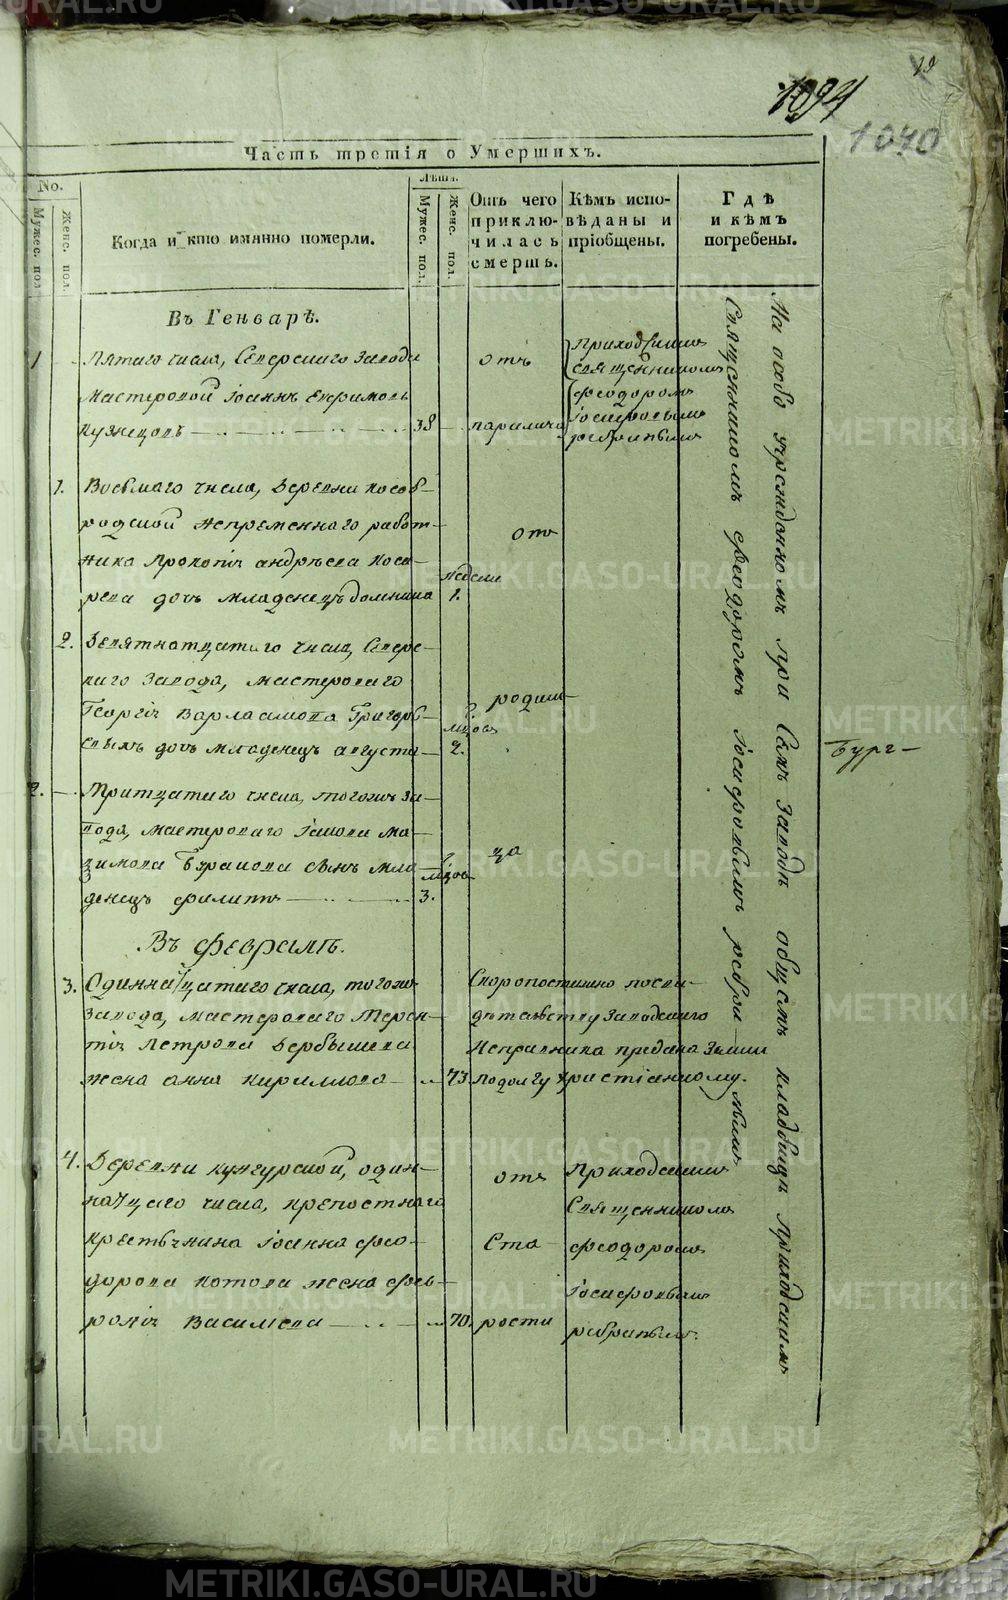 19
1094
1040
Часть третія о Умершихъ.
No.
Мужес. пол.
Женс. пол.
Когда и кто имянно померли.
Лѣта.
Мужес. пол.
Женс. пол.
Отъ чего приклю-
чилась
смерть.
Кѣмъ испо-
вѣданы и
пріобщены.
Гдѣ
и кѣмъ
погребены.
Въ Генварѣ.
1 Пятаго числа, Сѣверскаго Завода
Мастеровой Іоаннъ Ефимовъ
Кузнецовъ 38
отъ
паралича
Приходскимъ
священникомъ
Феодоромъ
Іосифовымъ
1. Восьмаго числа, Деревни Кособ-
родской непременнаго работ-
ника Прокопія Андрѣева Коса-
рева дочь младенецъ Домника
недели
1.
отъ
2. Девятнатцатаго числа, Сѣверс-
каго Завода, мастероваго
Георгія Варлаамова Григорь-
евыхъ дочь младенецъ Августа
2.
родим-
2. Тритцатаго числа, тогожъ за-
вода, мастероваго Іакова Ма-
ксимова Буракова сынъ мла-
денецъ Филиппъ
3.
ца
Въ Февралѣ.
3. Одиннатцатаго числа, тогожъ
завода, мастероваго Терен-
тія Петрова Дербышева
жена Анна Кириллова 73
Скоропостижно
Заводскаго
Исправника предана Земли
подолгу христіанскому.
4. Деревни Кунгурской, один-
натцаго числа, крепостнаго
крестьянина Іоанна Фео-
дорова Котова жена Фев-
ронія Васильева 70.
отъ
Ста
рости
Приходскимъ
Священникомъ
Феодоромъ
Іосифовымъ
На особо учрежденномъ при семъ Заводѣ общемъ кладбищѣ Приходскимъ
Священникомъ Феодоромъ Іосифовымъ
Бург-
METRIKI.GASO-URAL.RU